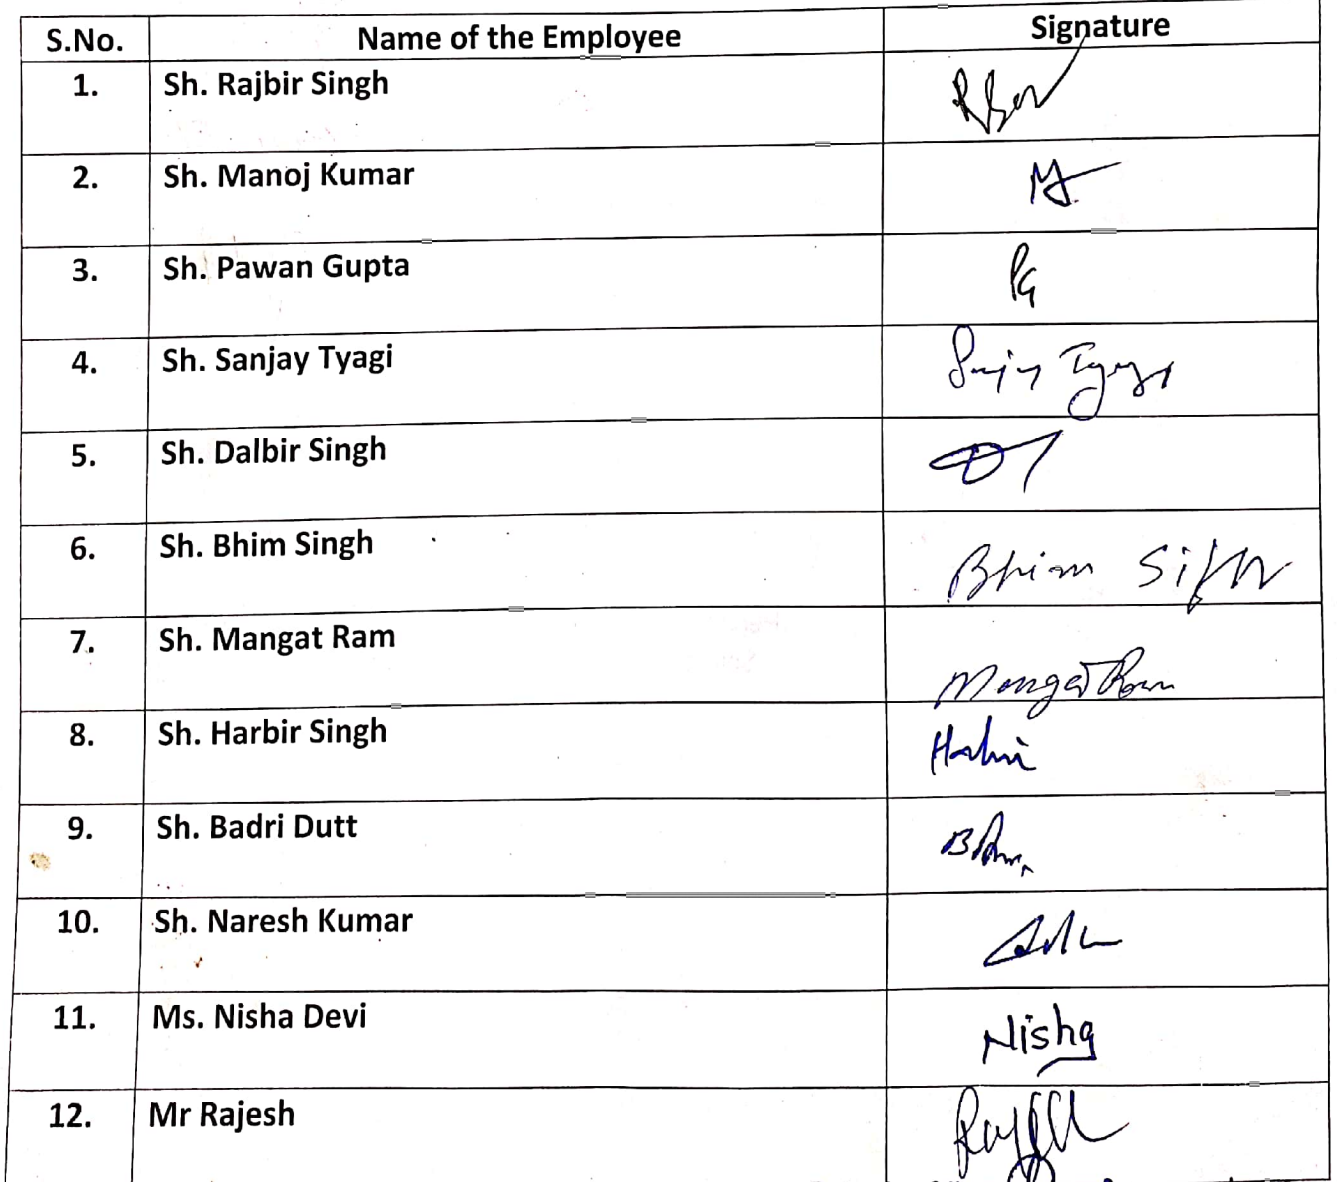 S.No. Name of the Employee Signature
1. Sh. Rajbir Singh
2. Sh. Manoj Kumar
3. Sh. Pawan Gupta PG
4. Sh. Sanjay Tyagi Sanjay Tyagi
5. Sh. Dalbir Singh
6. Sh. Bhim Singh Bhim Singh
7. Sh. Mangat Ram Mangat Ram
8. Sh. Harbir Singh Harbir
9. Sh. Badri Dutt
10. Sh. Naresh Kumar
11. Ms. Nisha Devi Nisha
12. Mr Rajesh